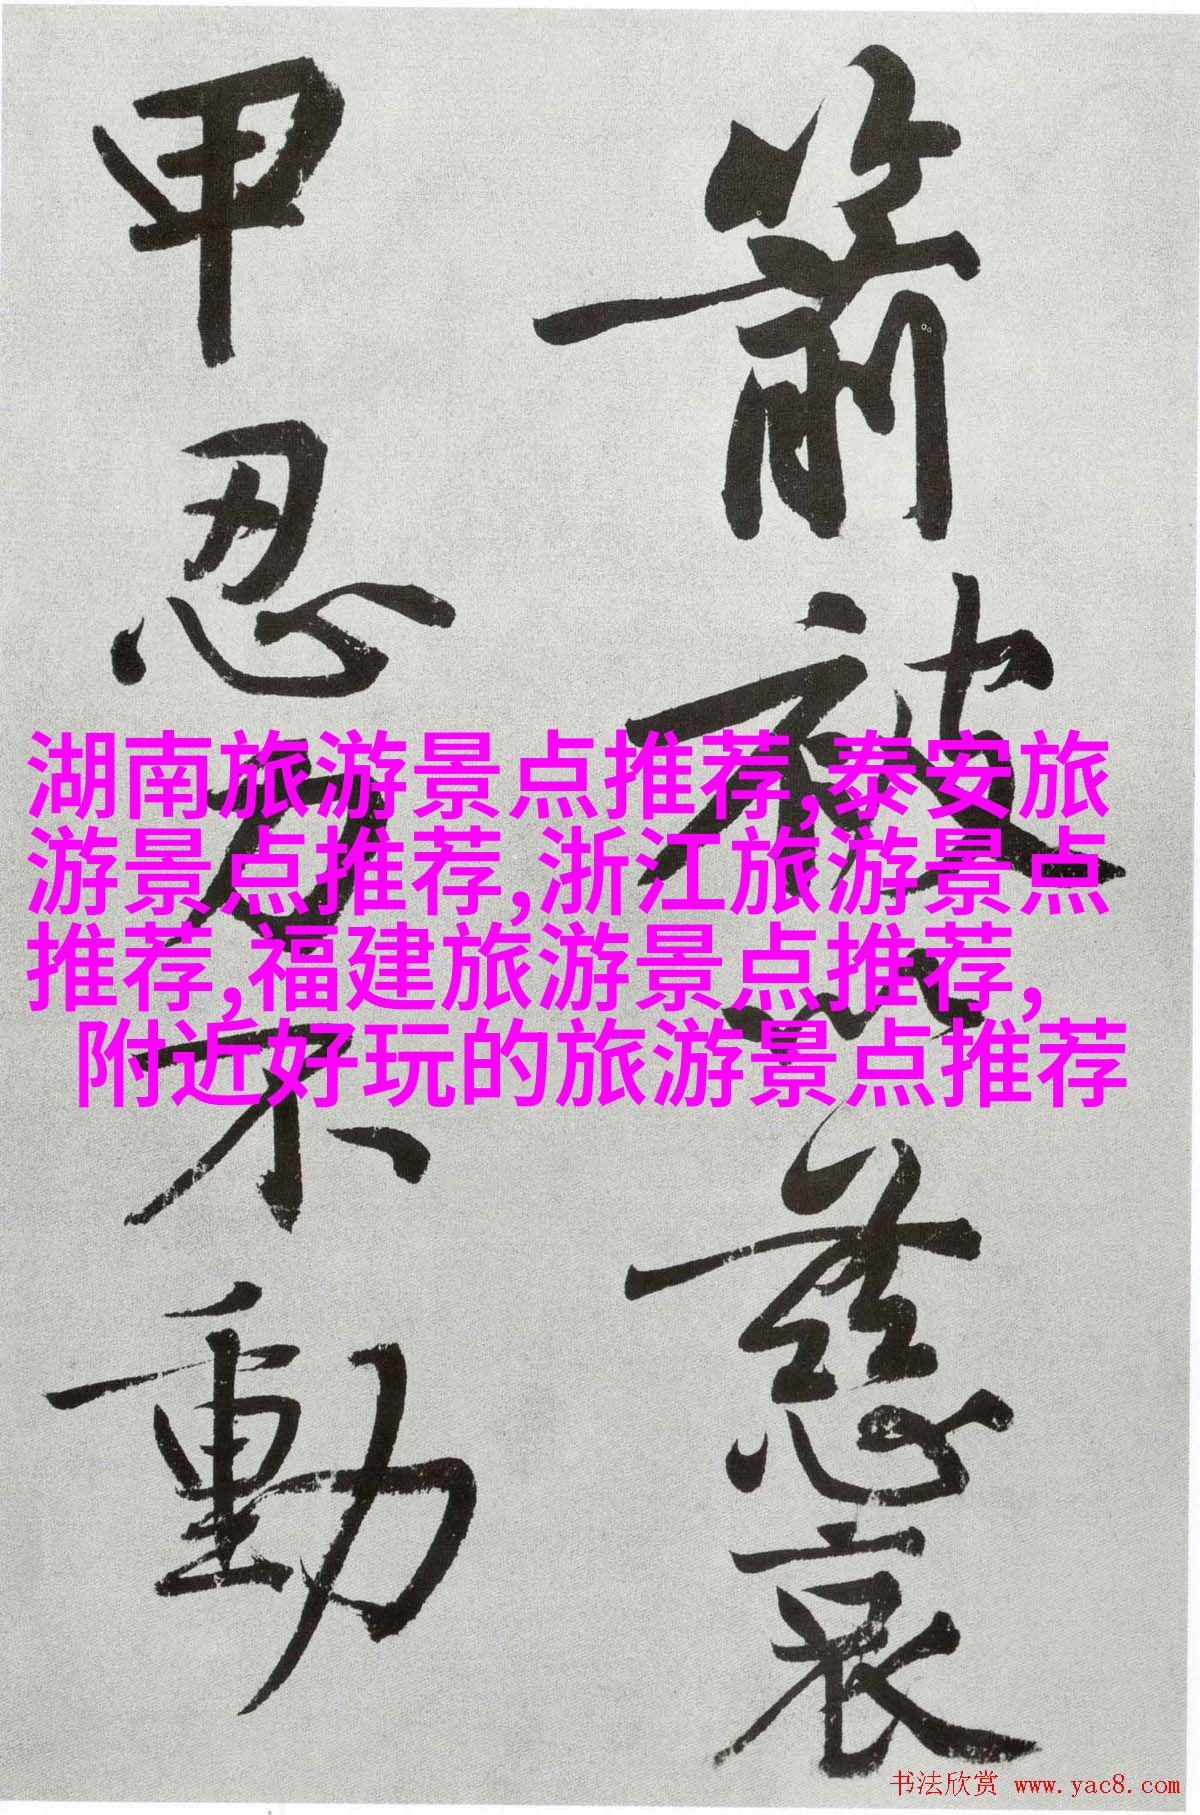 箭被慈哀
甲忍力不動
湖南旅游景点推荐,泰安旅
游景点推荐,浙江旅游景点
推荐,福建旅游景点推荐,
附近好玩的旅游景点推荐
书法欣赏 www.yac8.com